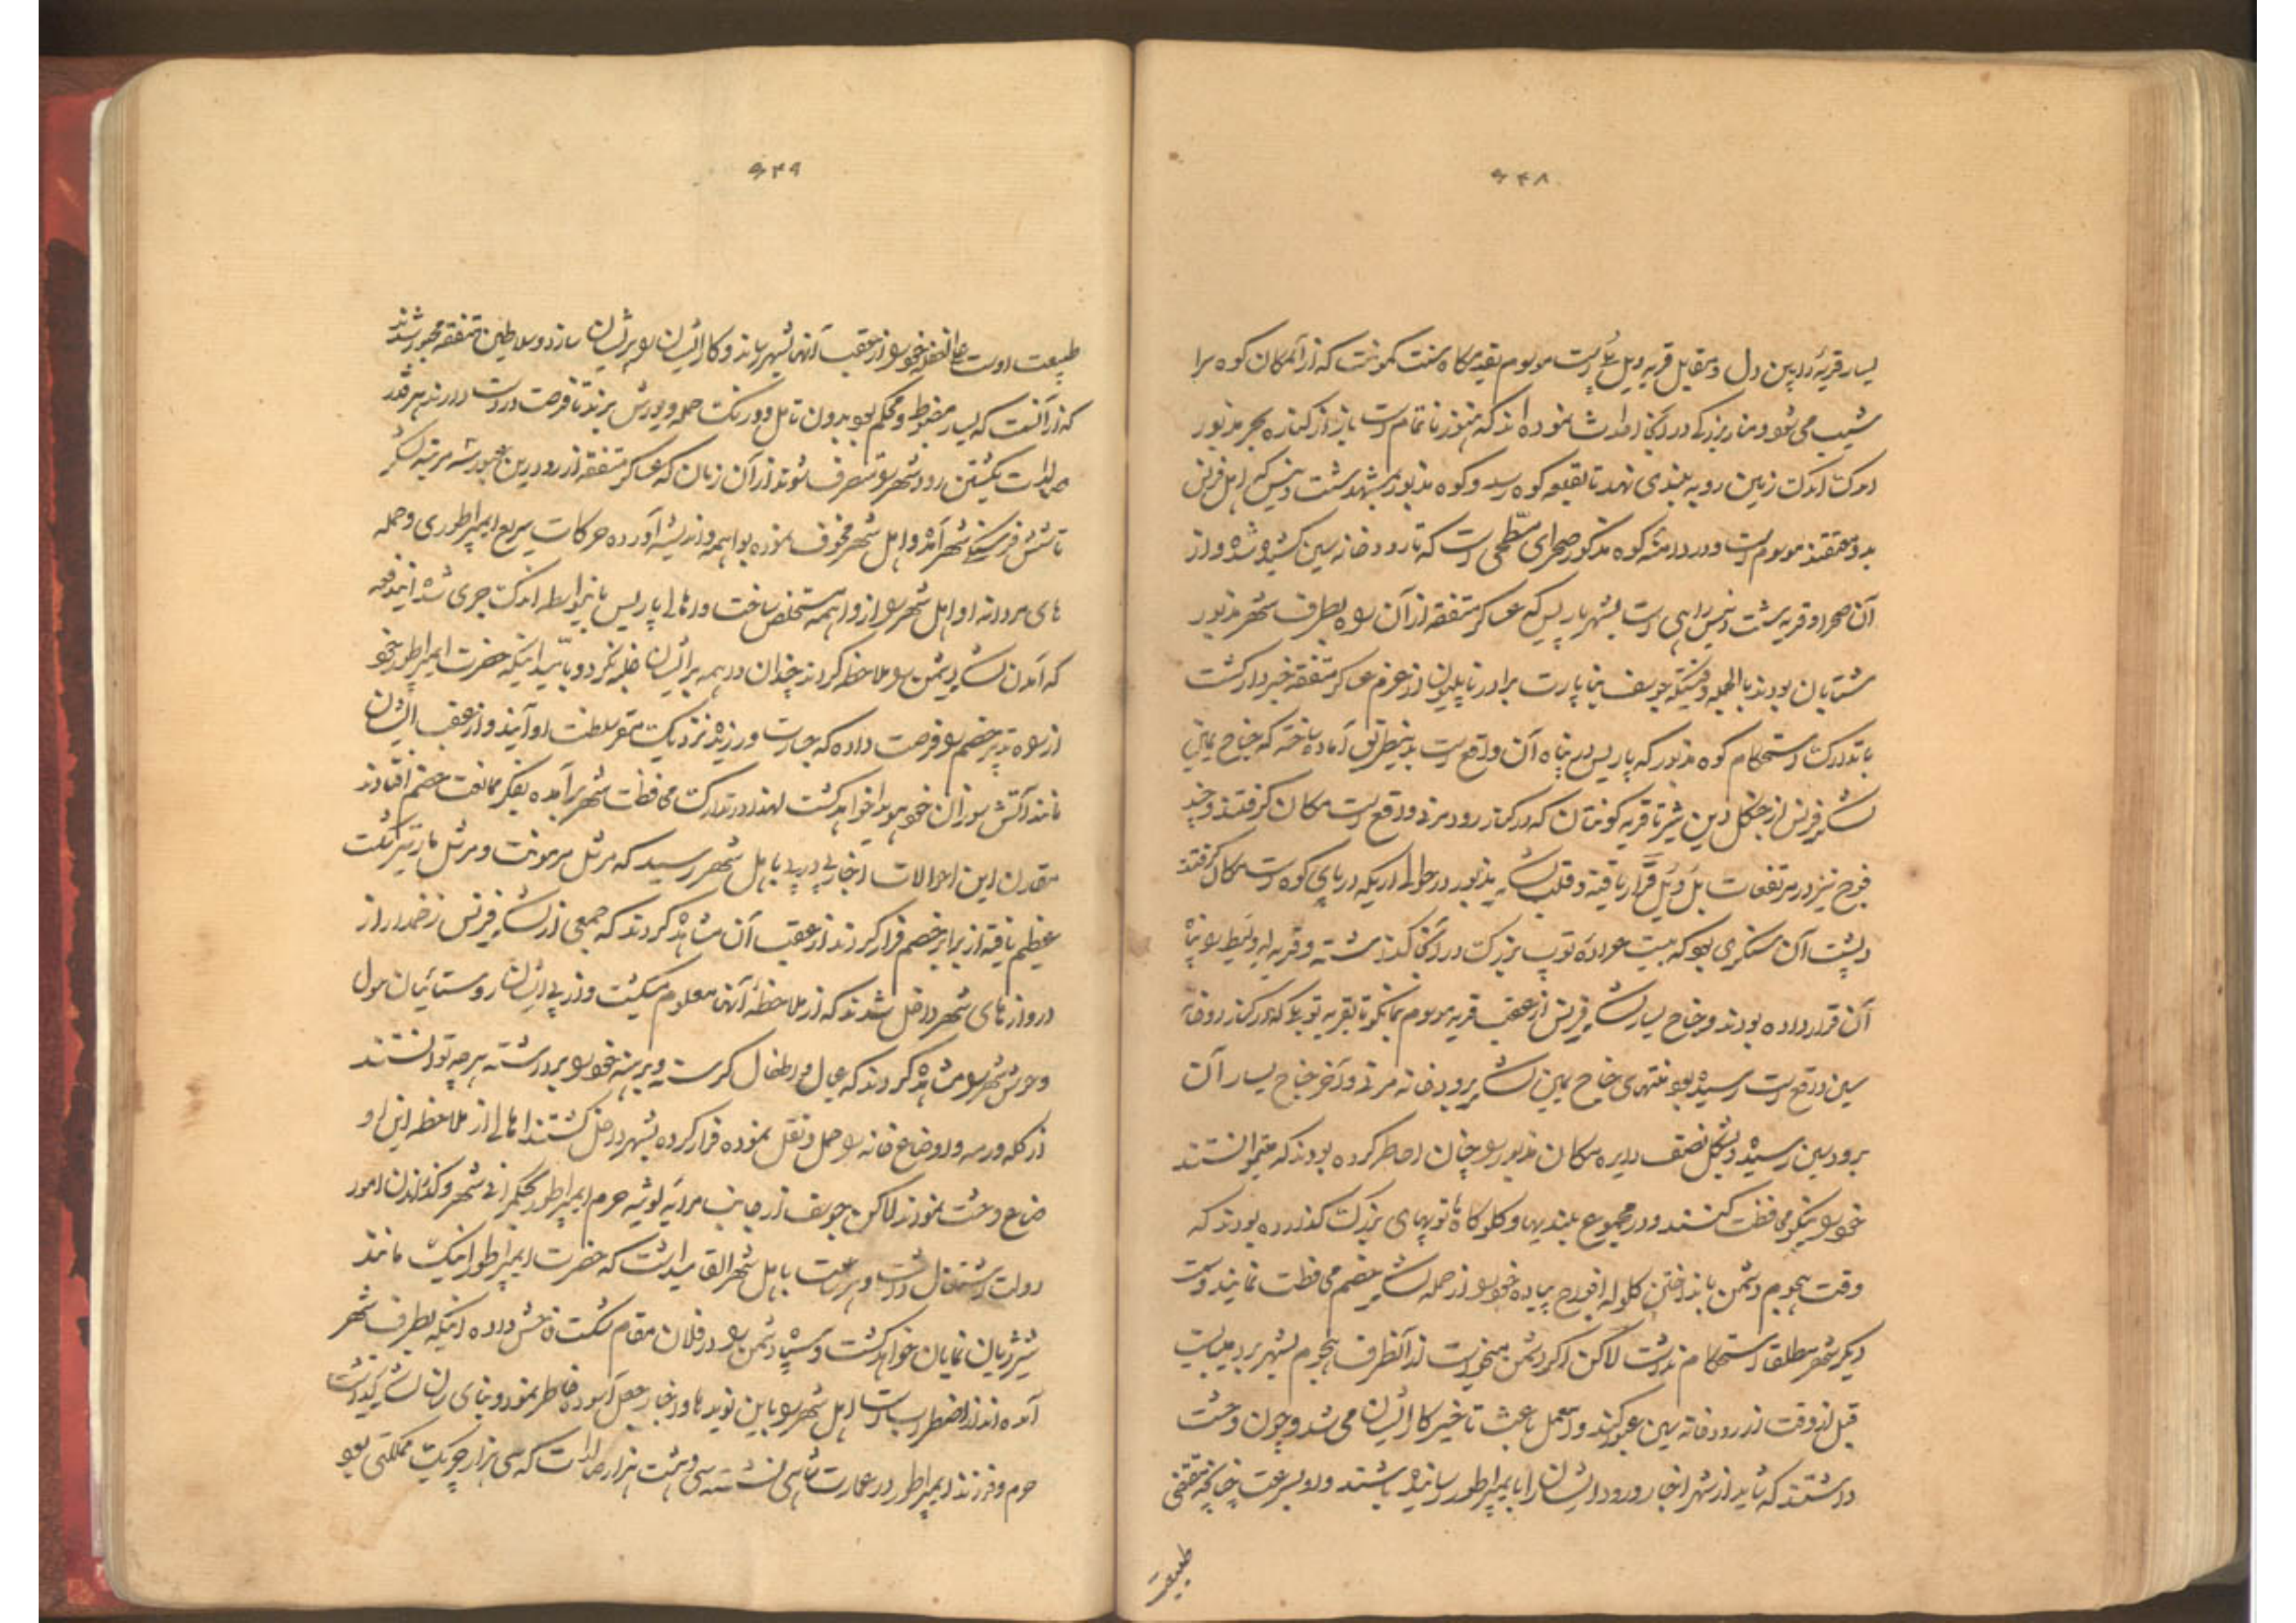 ۶۴۸
یسار قریهٔ در پین دل و مقابل قریه دیل است موسوم بقدمگاه سنت که از آنمکان کوه سرا
شیب می شود و بنای بزرگی در آنجا احداث نموده اند که هنوز ناتمام است باز از کناره بحر مذبور
اندک اندک زمین رو به بلندی نهد تا بقلعه کوه رسد و کوه مذبور بمشهد سنت دنیس که اهل فرانس
بدو معتقدند موسوم است و در دامنه کوه مذکور صحرای مسطحی است که تا رودخانه سین کشیده شده و از
آن صحرا و قریه سنت دنیس راهی است بشهر پاریس که عساکر متفقه از آن سو بطرف شهر مذبور
شتابان بودند بالجمله وقتیکه جوسف بناپارت برادر ناپلیون از عزم عساکر متفقه خبردار گشت
بتدارک استحکام کوه مذبور که پاریس در پناه آن واقع است بدینطریق آماده ساخته که جناح یمین
لشکر فرانس از جنگل وین تا قریه که در کنار رود مرن واقع است مکان گرفتند و چند
فوج نیز در مرتفعات بل ویل قرار یافته و قلب لشکر مذبور در حوالی در پای کوه است مکان گرفتند
در پشت آن سنگری بود که بیست عراده توپ بزرگ در آنجا گذاشته و قریه را پناه
آن قرار داده بودند و جناح یسار لشکر فرانس از عقب قریه موسوم تا بقریه که در کنار رودخانه
سین واقع است رسیده بود منتهای جناح یمین لشکر برودخانه مرن و آخر جناح یسار آن
برود سین رسیده و بشکل نصف دایره مکان مذبور را چنان احاطه کرده بودند که میتوانستند
خود را نیکو محافظت کنند و در مجموع بلندیها و گلوگاه ها توپهای بزرگ گذارده بودند که
وقت هجوم دشمن بانداختن گلوله افواج پیاده خود را از حمله لشکر خصم محافظت نمایند و سمت
دیگر شهر مطلقا استحکام نداشت لاکن اگر دشمن میخواست از آنطرف هجوم بشهر برد میبایست
قبل از وقت از رودخانه سین عبور کند و این عمل باعث تاخیر کار ایشان می شد و چون وحشت
داشتند که شاید از شهر اخبار ورود ایشان را بایمپراطور رسانیده باشند و او بسرعت چنانچه مقتضی
طبیعت
۶۴۹
طبیعت اوست علی الغفله خود را از عقب آنها بشهر رساند و کار ایشان را پریشان سازد و سلاطین متفقه مجبور شدند
که از آن سمت که بسیار مضبوط و محکم بود بدون تامل و درنگ حمله و یورش برند تا فرصت در دست دارند هر قدر
صلدات بکشتن رود شهر را متصرف شوند از آن زمان که عساکر متفقه از رود رین عبور
تا شش فرسنگی شهر آمده و اهل شهر مخوف نموده بواهمه و اندیشه آورده حرکات سریع ایمپراطوری و حمله
های مردانه او اهل شهر را از واهمه مستخلص ساخت و اهالی پاریس باینواسطه اندک جری شده ایندفعه
که آمدن لشکر دشمن را ملاحظه کردند چندان واهمه برایشان غلبه نکرد و بامید اینکه حضرت ایمپراطور بنحو
از سوء تدبیر خصم را فرصت داده که جسارت ورزیده نزدیک مقر سلطنت او آیند و از عقب ایشان
مانند آتش سوزان خود هویدا خواهد گشت لهذا در تدارک محافظت شهر برآمده بفکر ممانعت خصم افتادند
مقارن این احوالات اخبار پی در پی باهل شهر رسید که مرشل مرمونت و مرشل مارتیر شکست
عظیم یافته از برابر خصم فرار کردند از عقب آن مشاهده کردند که جمعی از لشکر فرانس زخمدار از
دروازهای شهر داخل شدند که از ملاحظه آنها معلوم میگشت و از پی ایشان روستائیان حول
و حوش شهر را مشاهده کردند که عیال و اطفال گرسنه و برهنه خود را برداشته هرچه توانستند
از گله و رمه و اوضاع خانه را حمل و نقل نموده فرار کرده بشهر داخل گشتند اهالی از ملاحظه این او
ضاع وحشت نمودند لاکن جوسف از جانب مرایه لوئیزه حرم ایمپراطور بحکمرانی شهر و گذراندن امور
دولت اشتغال داشت و بسرعت باهل شهر القا میداشت که حضرت ایمپراطور اینک مانند
شیر ژیان نمایان خواهد گشت و سپاه دشمن را در فلان مقام شکست فاحش داده اینکه بطرف شهر
آمده اند از اضطرابست اهل شهر را باین نویدها و اخبار جعل آسوده خاطر نمود و بنای سان لشکر گذاشت
حرم و فرزند ایمپراطور در عمارت شاهی نشسته سی و هشت هزار صلدات که سی هزار چریک مملکتی بود